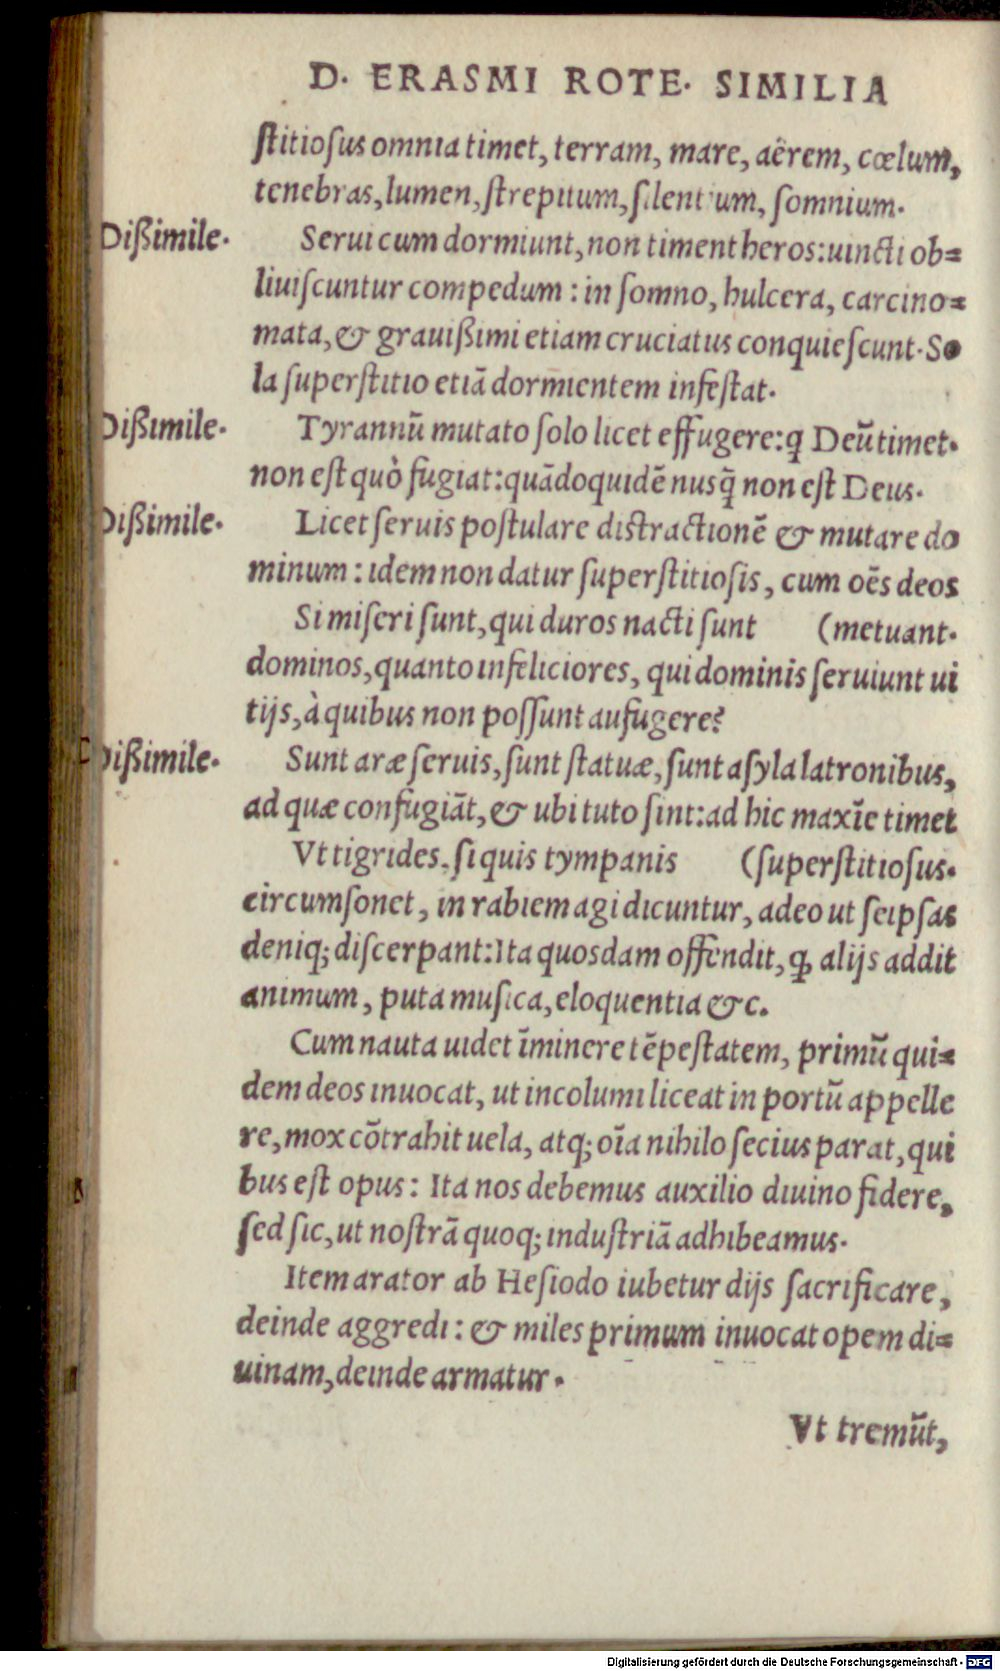 D. ERASMI ROTE. SIMILIA
ſtitioſus omnia timet, terram, mare, aërem, cœlum,
tenebras, lumen, ſtrepitum, ſilentium, ſomnium.
Dißimile. Serui cum dormiunt, non timent heros: uincti ob=
liuiſcuntur compedum : in ſomno, hulcera, carcino=
mata, & grauißimi etiam cruciatus conquieſcunt. So
la ſuperſtitio etiā dormientem infeſtat.
Dißimile. Tyrannū mutato ſolo licet effugere: ꝗ Deū timet.
non eſt quò fugiat: quādoquidē nusq̄ non eſt Deus.
Dißimile. Licet ſeruis poſtulare diſtractionē & mutare do
minum : idem non datur ſuperſtitioſis, cum oēs deos
Si miſeri ſunt, qui duros nacti ſunt (metuant.
dominos, quanto infeliciores, qui dominis ſeruiunt ui
tijs, à quibus non poſſunt aufugere?
Dißimile. Sunt aræ ſeruis, ſunt ſtatuæ, ſunt aſyla latronibus,
ad quæ confugiāt, & ubi tuto ſint: ad hic maxīe timet
Vt tigrides, ſi quis tympanis (ſuperſtitioſus.
circumſonet, in rabiem agi dicuntur, adeo ut ſeipſas
deniq; diſcerpant: Ita quosdam offendit, ꝙ alijs addit
animum, puta muſica, eloquentia &c.
Cum nauta uidet īminere tēpeſtatem, primū qui=
dem deos inuocat, ut incolumi liceat in portū appelle
re, mox cōtrahit uela, atq; oīa nihilo ſecius parat, qui
bus eſt opus: Ita nos debemus auxilio diuino fidere,
ſed ſic, ut noſtrā quoq; induſtriā adhibeamus.
Item arator ab Heſiodo iubetur dijs ſacrificare,
deinde aggredi : & miles primum inuocat opem di=
uinam, deinde armatur.
Vt tremūt,
Digitalisierung gefördert durch die Deutsche Forschungsgemeinschaft - DFG